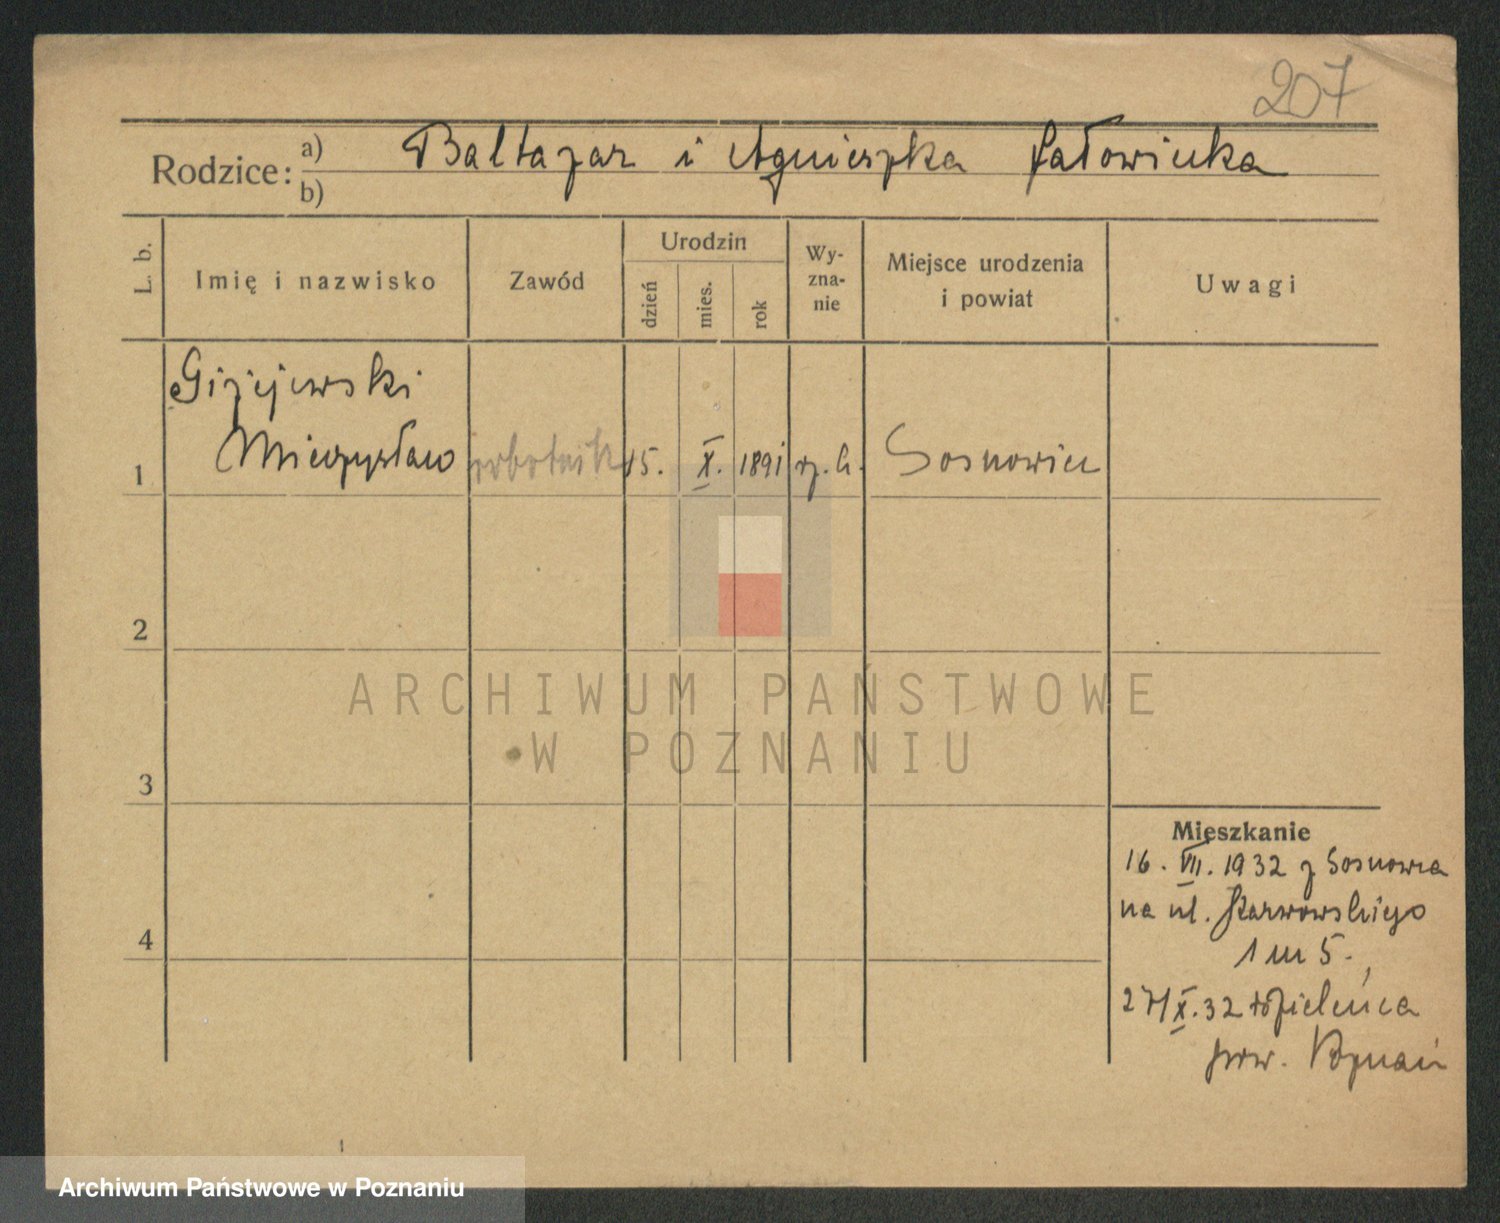 207
Rodzice: a) Baltazar i Agnieszka
b)
L. b.
Imię i nazwisko
Zawód
Urodzin
dzień
mies.
rok
Wy-
zna-
nie
Miejsce urodzenia
i powiat
Uwagi
Giżejewski
1 Mieczysław robotnik 15. X. 1891 rz. k. Sosnowiec
2
3
4
Mieszkanie
16. VII. 1932 z Sosnowca
na ul.
1 m 5.
27/X. 32 do Zieleńca
pow. Poznań
ARCHIWUM PAŃSTWOWE
W POZNANIU
Archiwum Państwowe w Poznaniu